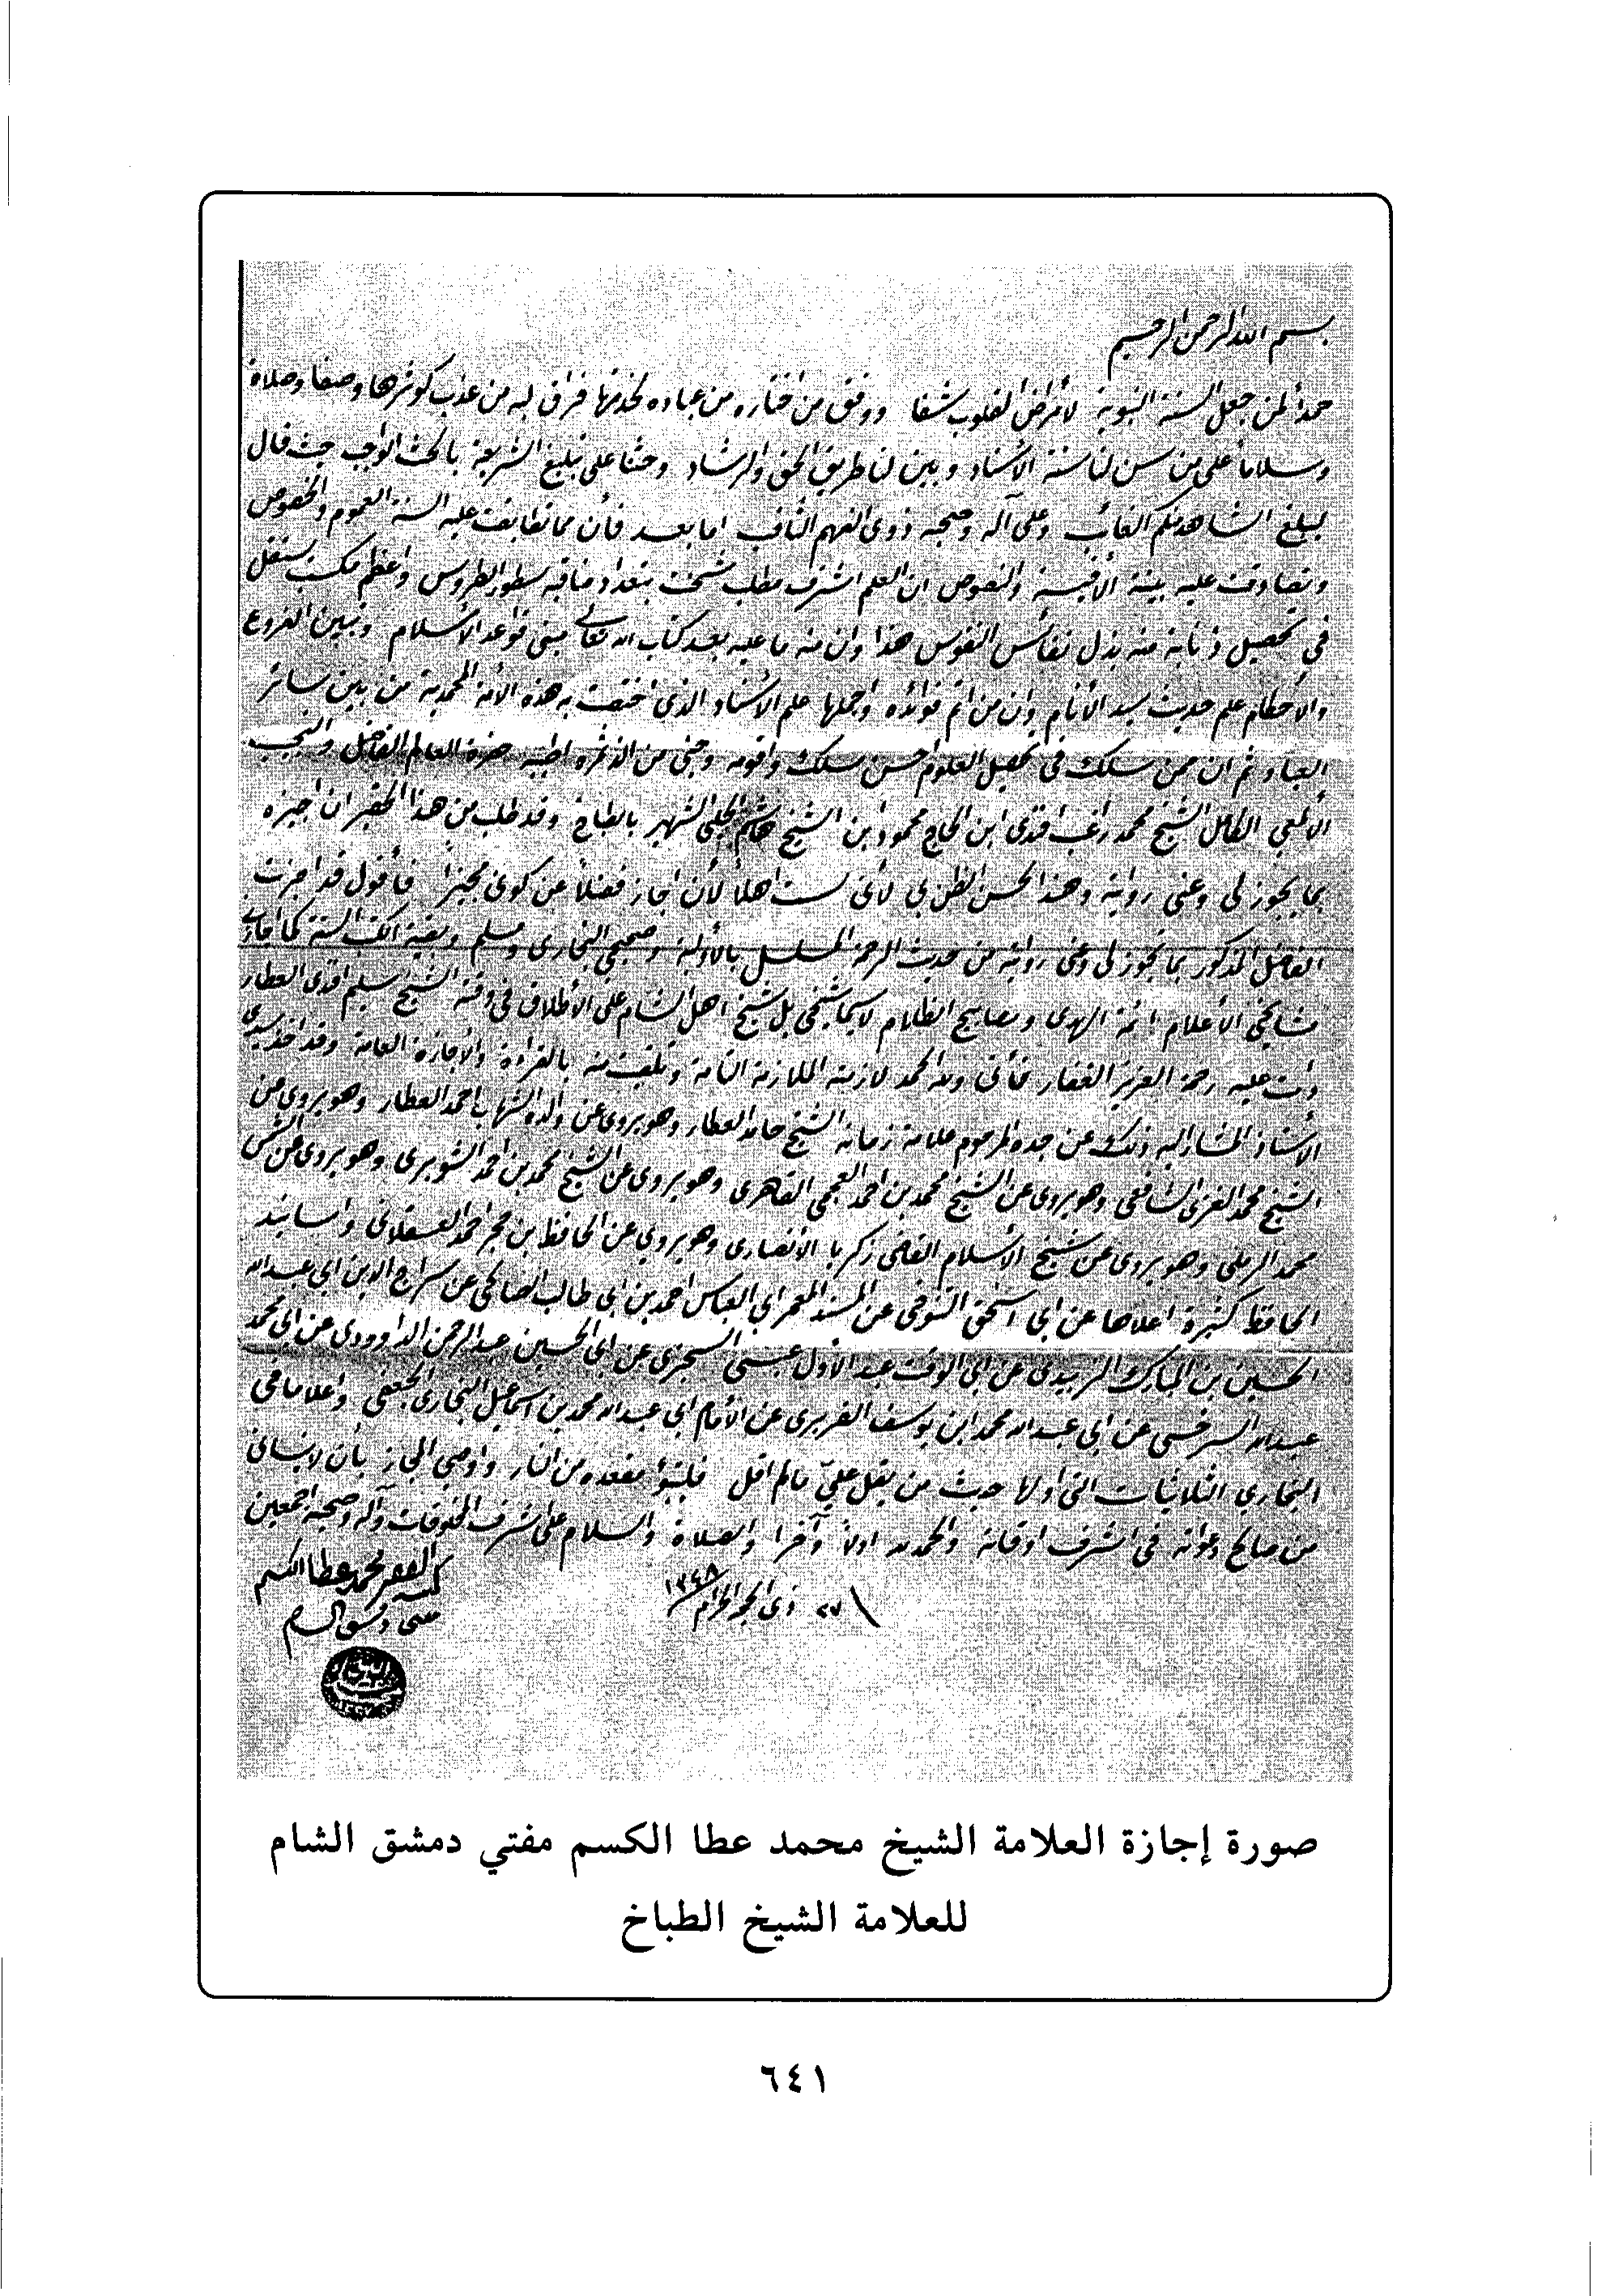 بسم الله الرحمن الرحيم
حمداً لمن جعل السنة النبوية لأمراض القلوب شفا ووفق من اختاره من عباده لخدمتها فراق له من عذب كوثرها وصفا وصلاة
وسلاما على من سن لنا سنة الاسناد وبين لنا طريق الحق والرشاد وحثنا على تبليغ الشريعة بالحث الواجب حيث قال
ليبلغ الشاهد منكم الغائب وعلى آله وصحبه ذوى الفهم الثاقب اما بعد فأن مما تطابقت عليه السنة العموم والخصوص
وتصادقت عليه بينة الأقيسة والنصوص ان العلم اشرف مطلب شحنت بتعداد مناقبه سطور الطروس واعظم مكسب يستقل
في تحصيل ذبابة منه بذل نفائس النفوس هذا وان منه ما عليه بعد كتاب الله تعالى مبنى قواعد الاسلام وتبين الفروع
والاحكام علم حديث سيد الأنام وان من اتم فوائده واجملها علم الاسناد الذى اختصت به هذه الأمة المحمدية من بين سائر
العباد ثم ان ممن سلك في تحصيل العلوم احسن مسلك واقومه وجنى من الذ ثمره اطيبه حضرة العالم الفاضل والنجيب
الألمعي الكامل الشيخ محمد راغب افندى ابن الحاج محمود ابن الشيخ هاشم الحلبي الشهير بالطباخ وقد طلب من هذا الحقير ان اجيزه
بما يجوز لى وعنى روايته وهذا لحسن الظن بي لأنى لست اهلاً لأن اجاز فضلاً عن كونى مجيزاً فأقول قد اجزت
الفاضل المذكور بما يجوز لى وعنى روايته من حديث الرحمة المسلسل بالأولية وصحيحي البخارى ومسلم وبقية الكتب الستة كما اجازني
مشايخي الأعلام ائمة الهدى ومصابيح الظلام لا سيما شيخي بل شيخ اهل الشام على الأطلاق في وقته الشيخ سليم افندى العطار
دامت عليه رحمة العزيز الغفار فأنى ولله الحمد لازمته الملازمة التامة وتلقيت منه بالقراءة والاجازة العامة وقد اخذ سيدى
الأستاذ المشار اليه ذلك عن جده المرحوم علامة زمانه الشيخ حامد العطار وهو يروى عن والده الشهاب احمد العطار وهو يروى عن
الشيخ محمد الغزى الشافعى وهو يروى عن الشيخ محمد بن احمد العجمى القاهرى وهو يروى عن الشيخ محمد بن احمد الشوبرى وهو يروى عن الشمس
محمد الرملى وهو يروى عن شيخ الاسلام القاضى زكريا الأنصارى وهو يروى عن الحافظ بن حجر احمد العسقلانى واسانيد
الحافظ كثيرة اعلاها عن ابى اسحق التنوخى عن المسند المعمر ابى العباس احمد بن ابى طالب الصالحى عن سراج الدين ابى عبدالله
الحسين بن المبارك الزبيدى عن ابى الوقت عبد الأول عيسى السجزى عن ابى الحسين عبد الرحمن الداوودى عن ابى محمد
عبدالله السرخسى عن ابى عبدالله محمد ابن يوسف الفربرى عن الأمام ابى عبدالله محمد بن اسماعيل البخارى الجعفى واعلا ما في
البخاري الثلاثيات التى اولها حديث من يقل علي ما لم اقل فليتبوأ مقعده من النار واوصي المجاز بأن لا ينسانى
من صالح دعواته في اشرف اوقاته والحمد لله اولاً وآخرا والصلاة والسلام على اشرف المخلوقات وآله وصحبه اجمعين
٢٧ ذى الحجة الحرام ١٣٤٨
كتبه الفقير محمد عطا الكسم
مفتى دمشق الشام
صورة إجازة العلامة الشيخ محمد عطا الكسم مفتي دمشق الشام
للعلامة الشيخ الطباخ
٦٤١